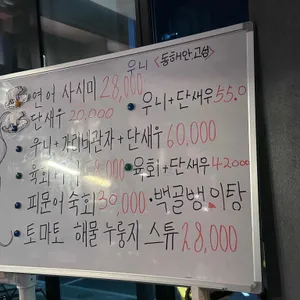 우니 <동해안 고성>
연어 사시미 28,000
우니+단새우 55.0
단새우 20,000
우니+가리비관자+단새우 60,000
육회+
육회+단새우 42000
피문어 숙회 30,000 · 백골뱅이탕
토마토 해물 누룽지 스튜 28,000